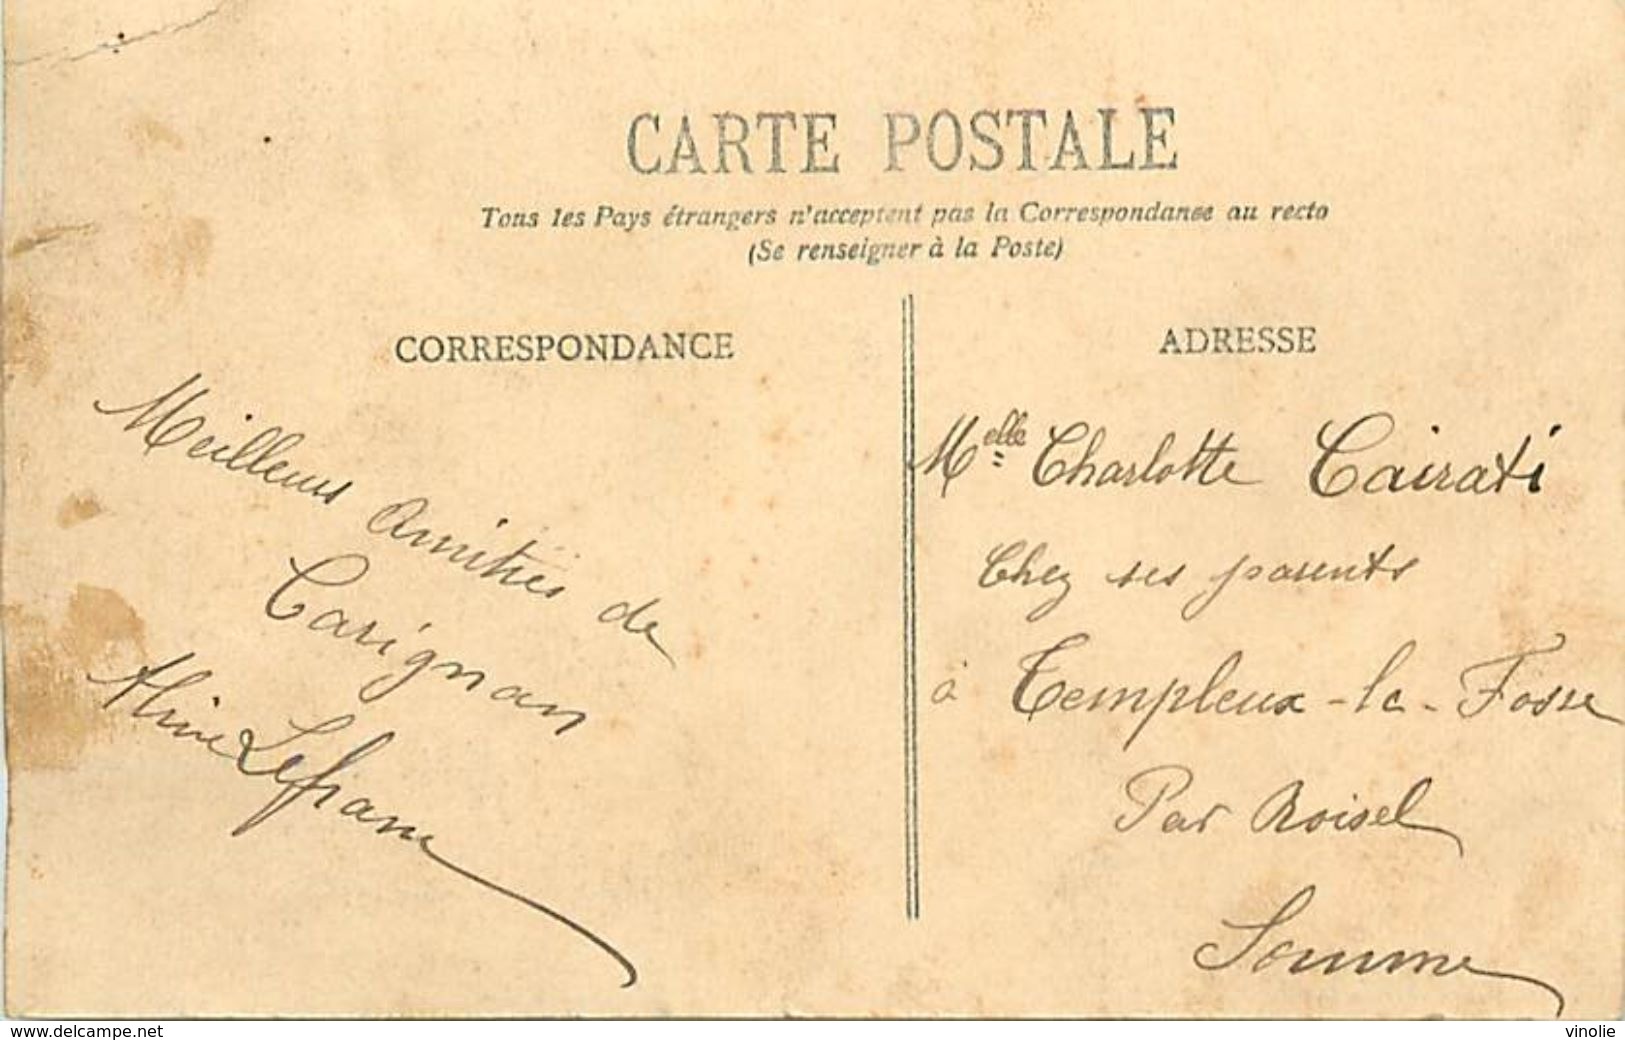 CARTE POSTALE
Tous les Pays étrangers n'acceptent pas la Correspondance au recto
(Se renseigner à la Poste)
CORRESPONDANCE
Meilleurs amitiés de
Carignan
Aline Lefranc
ADRESSE
Melle Charlotte Cairati
Chez ses parents
à Templeux-la-Fosse
Par Roisel
Somme
www.delcampe.net
vinolie